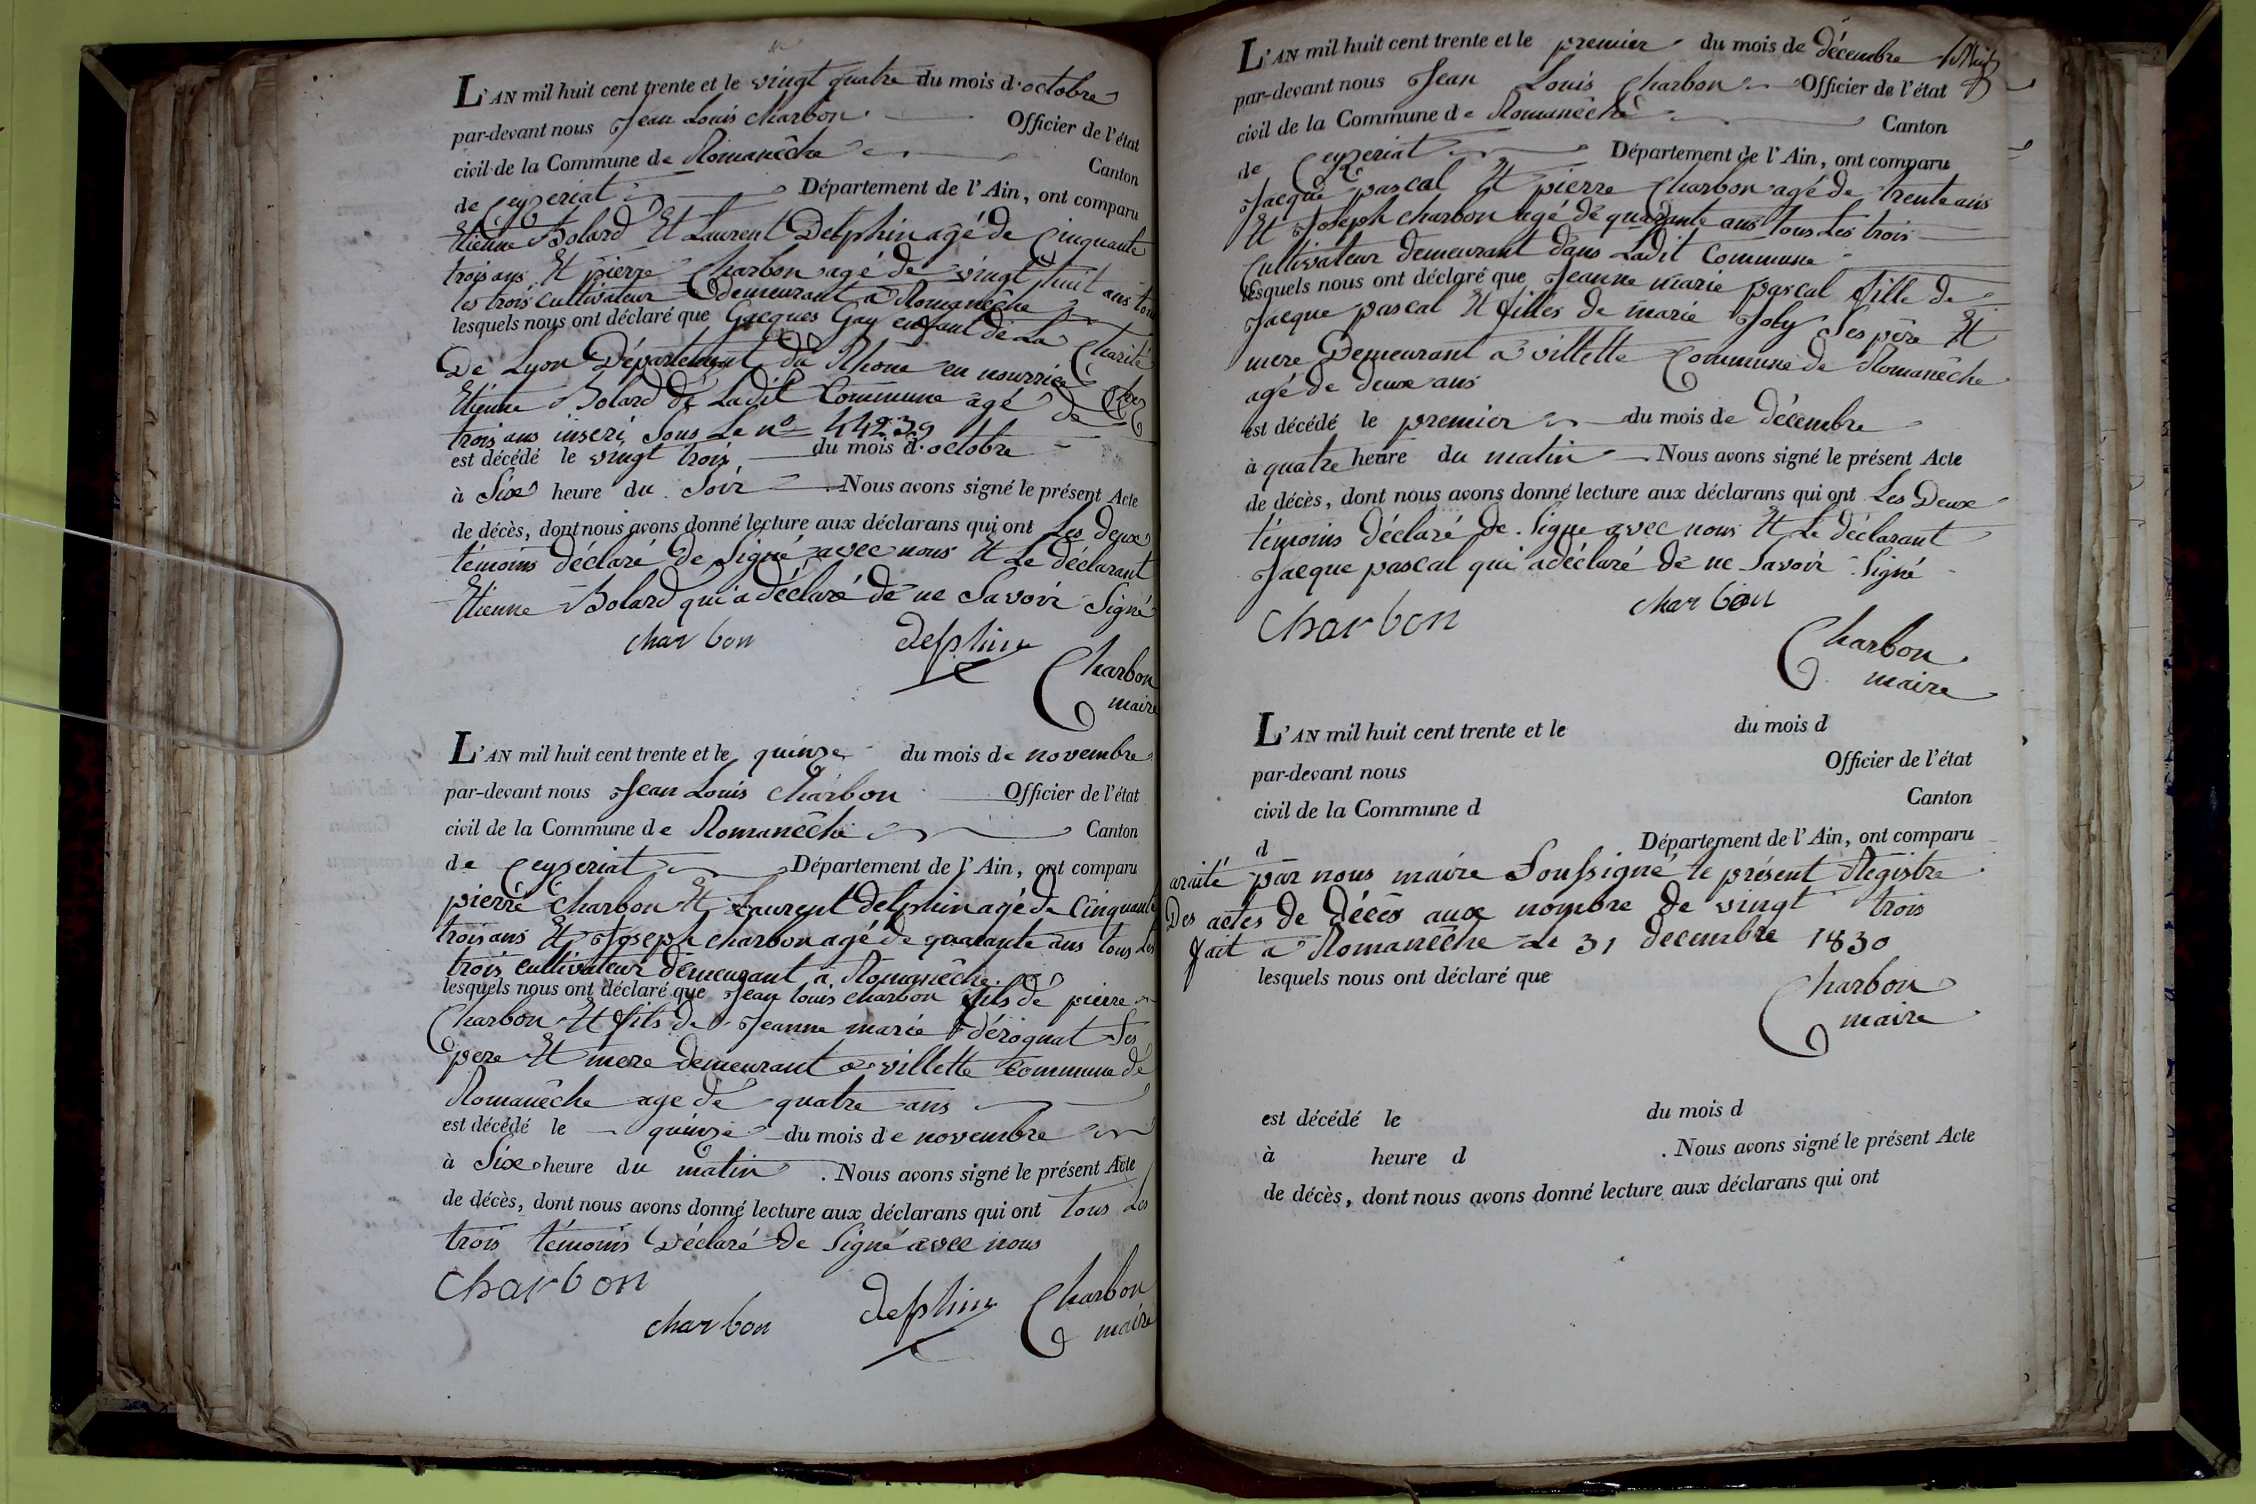 L'AN mil huit cent trente et le vingt quatre du mois d'octobre
par-devant nous Jean Louis charbon Officier de l'état
civil de la Commune de Romanêche Canton
de Ceyzeriat Département de l'Ain, ont comparu
Etienne Bolard Et Laurent Delphin agé de Cinquante
trois ans Et pierre Charbon agé de vingt huit ans tous
les trois cultivateur demeurant a Romanêche
lesquels nous ont déclaré que Gacques Gay enfant de La Charité
De Lyon Département du Rhone en nourrice Chez
Etienne Bolard de Ladit Commune agé de
trois ans inscri Sous Le nº 44239
est décédé le vingt trois du mois d'octobre
à Six heure du Soir Nous avons signé le présent Acte
de décès, dont nous avons donné lecture aux déclarans qui ont Les deux
témoins déclaré de Signé avec nous Et Le déclarant
Etienne Bolard qui a déclaré de ne Savoir Signé
charbon delphin Charbon
maire
L'AN mil huit cent trente et le quinze du mois de novembre
par-devant nous Jean Louis Charbon Officier de l'état
civil de la Commune de Romanêche Canton
de Ceyzeriat Département de l'Ain, ont comparu
pierre Charbon Et Laurent delphin agé de Cinquante
trois ans Et Joseph charbon agé de quarante ans tous Les
trois cultivateur demeurant a Romanêche
lesquels nous ont déclaré que Jean louis charbon fils de pierre
Charbon Et fils de Jeanne marie dérognat Ses
pere Et mere demeurant a villette Commune de
Romanêche age de quatre ans
est décédé le quinze du mois de novembre
à Six heure du matin . Nous avons signé le présent Acte
de décès, dont nous avons donné lecture aux déclarans qui ont tous Les
trois témoins Déclaré de Signé avec nous
charbon
charbon delphin Charbon
maire
L'AN mil huit cent trente et le premier du mois de décembre
par-devant nous Jean Louis Charbon Officier de l'état
civil de la Commune de Romanêche Canton
de Ceyzeriat Département de l'Ain, ont comparu
Jacque pascal Et pierre Charbon agé de trente ans
Et Joseph charbon agé de quarante ans tous Les trois
Cultivateur demeurant dans Ladit Commune
lesquels nous ont déclaré que Jeanne marie pascal fille de
Jacque pascal Et filles de marie Joly Ses père Et
mere Demeurant a villette Commune de Romanêche
agé de deux ans
est décédé le premier du mois de décembre
à quatre heure du matin Nous avons signé le présent Acte
de décès, dont nous avons donné lecture aux déclarans qui ont Les Deux
témoins déclaré de Signe avec nous Et Le déclarant
Jacque pascal qui a déclaré de ne Savoir Signé
charbon charbon
Charbon
maire
L'AN mil huit cent trente et le du mois d
par-devant nous Officier de l'état
civil de la Commune d Canton
d Département de l'Ain, ont comparu
par nous maire Soussigné le présent Régistre
Des actes de décès aux nombre de vingt trois
fait a Romanêche Le 31 decembre 1830
lesquels nous ont déclaré que
Charbon
maire
est décédé le du mois d
à heure d . Nous avons signé le présent Acte
de décès, dont nous avons donné lecture aux déclarans qui ont